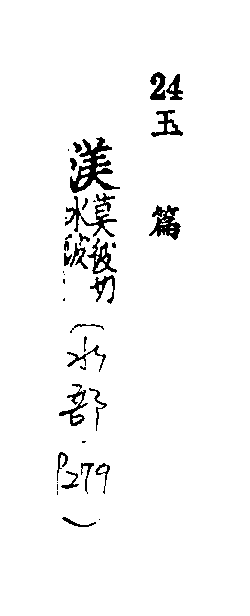 24玉篇
渼莫彼切水波（水部.P279）